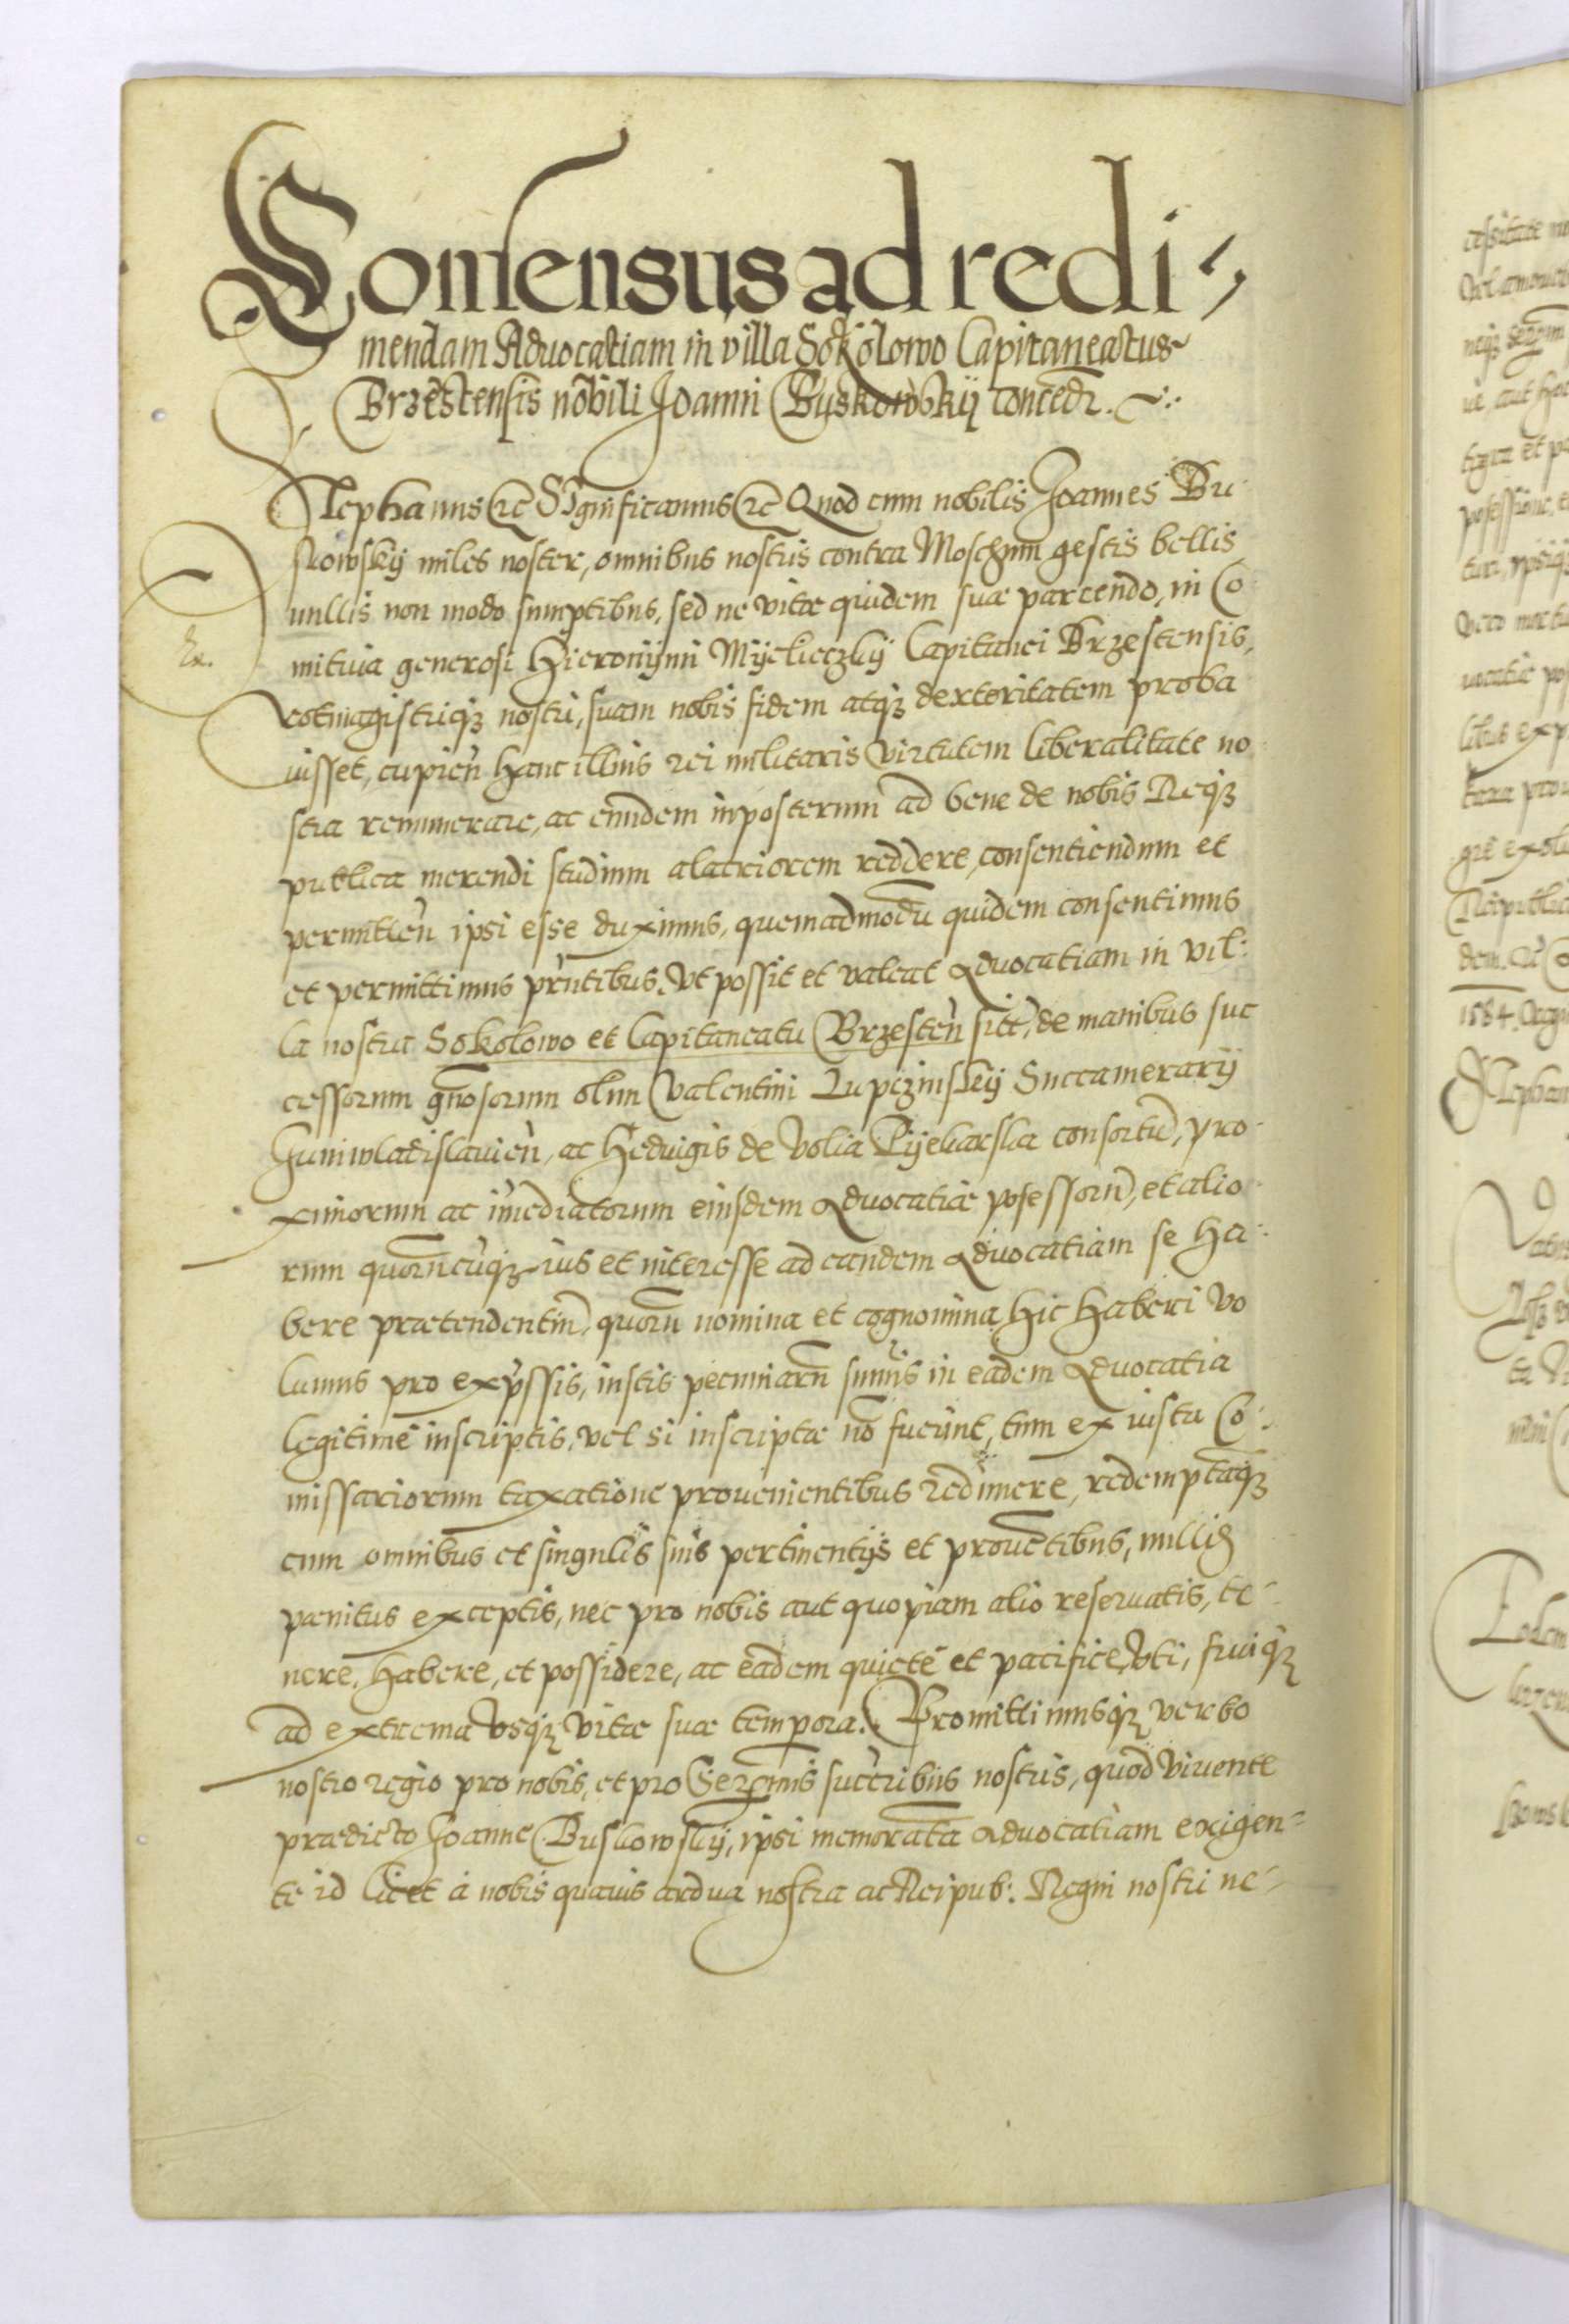 Consensus ad redi-
mendam Aduocatiam in villa Sokolowo Capitaneatus
Brzestensis nobili Joanni Buskowskij conced.
Stephanus etc Significamus etc Quod cum nobilis Joannes Bu
skowskij miles noster, omnibus nostris contra Moschum gestis bellis
nullis non modo sumptibus, sed ne vitæ quidem suæ parcendo, in Co
mitiua generosi Hieronijmi Mijelieczkij Capitanei Brzestensis,
rotmagistriq nostri, suam nobis fidem atq dexteritatem proba
uisset, cupien hanc illius rei militaris virtutem liberalitate no
stra remunerare, ac eundem inposterum ad bene de nobis Req
publica merendi studium alacriorem reddere, consentiendum et
permitten ipsi esse duximus, quemadmodu quidem consentimus
et permittimus pntibus. Vt possit et valeat Aduocatiam in vil:
la nostra Sokolowo et Capitaneatu Brzesten sitt, de manibus suc
cessorum gnosorum olim Valentini Lupczinskij Succamerarij
Juniwladislauien, ac Heduigis de Volia Pijekarska consortu, pro
ximorum ac imediatorum eiusdem Aduocatiæ posessoru, et alio
rum quorucuq ius et interesse ad eandem Aduocatiam se ha:
bere prætendentiu, quoru nomina et cognomina hic haberi vo
lumus pro expssis, iustis pecuniaru sumis in eadem Aduocatia
legitime inscriptis, vel si inscriptæ no fuerint, tum ex iusta Co:
missariorum taxatione prouenientibus redimere, redemptaq
cum omnibus et singulis suis pertinentijs et prouetibus, nullis
pænitus exceptis, nec pro nobis aut quopiam alio reseruatis, te-
nere, habere, et possidere, ac eadem quietè et pacifice vti, fruiq
ad extrema vsq vitæ suæ tempora. Promittimusq verbo
nostro regio pro nobis, et pro Serenmis succribus nostris, quod viuente
prædicto Joanne Buskowskij, ipsi memorata Aduocatiam exigen-
te id licet à nobis quauis ardua nostra ac Reipub: Regni nostri ne-